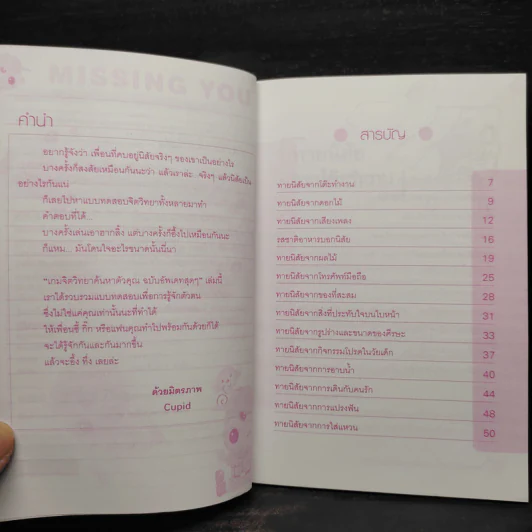 MISSING YOU
คำนำ
อยากรู้จังว่า เพื่อนที่คบอยู่นิสัยจริงๆ ของเขาเป็นอย่างไร
บางครั้งก็สงสัยเหมือนกันนะว่า แล้วเราล่ะ จริงๆ แล้วนิสัยเป็น
อย่างไรกันแน่
ก็เลยไปหาแบบทดสอบจิตวิทยาทั้งหลายมาทำ
คำตอบที่ได้...
บางครั้งเล่นเอาฮากลิ้ง แต่บางครั้งก็อึ้งไปเหมือนกันนะ
ก็แหม... มันโดนใจอะไรขนาดนั้นนี่นา
"เกมจิตวิทยาค้นหาตัวคุณ ฉบับอัพเดทสุดๆ" เล่มนี้
เราได้รวบรวมแบบทดสอบเพื่อการรู้จักตัวตน
ซึ่งไม่ใช่แค่คุณเท่านั้นนะที่ทำได้
ให้เพื่อนซี้ กิ๊ก หรือแฟนคุณทำไปพร้อมกันด้วยก็ได้
จะได้รู้จักกันและกันมากขึ้น
แล้วจะอึ้ง ทึ่ง เลยล่ะ
ด้วยมิตรภาพ
Cupid
สารบัญ
ทายนิสัยจากโต๊ะทำงาน 7
ทายนิสัยจากดอกไม้ 9
ทายนิสัยจากเสียงเพลง 12
รสชาติอาหารบอกนิสัย 16
ทายนิสัยจากผลไม้ 19
ทายนิสัยจากโทรศัพท์มือถือ 25
ทายนิสัยจากของที่สะสม 28
ทายนิสัยจากสิ่งที่ประทับใจบนใบหน้า 31
ทายนิสัยจากรูปร่างและขนาดของศีรษะ 33
ทายนิสัยจากกิจกรรมโปรดในวัยเด็ก 37
ทายนิสัยจากการอาบน้ำ 40
ทายนิสัยจากการเดินกับคนรัก 44
ทายนิสัยจากการแปรงฟัน 48
ทายนิสัยจากการใส่แหวน 50